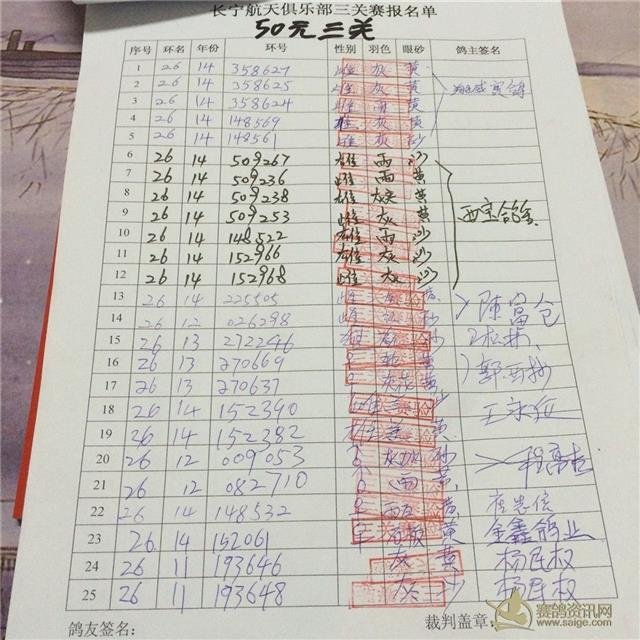 长宁航天俱乐部三关赛报名单
50元三关
序号 环名 年份 环号 性别 羽色 眼砂 鸽主签名
1 26 14 358627 雌 灰 黄
2 26 14 358625 雌 灰 黄
3 26 14 358624 雌 雨 黄
4 26 14 148569 雄 灰 黄
5 26 14 148561 雌 灰 砂
6 26 14 509267 雄 雨 沙
7 26 14 509236 雄 雨 黄
8 26 14 509238 雄 灰 黄
9 26 14 509253 雌 灰 黄
10 26 14 148522 雄 雨 沙
11 26 14 152966 雄 灰 沙
12 26 14 152968 雌 灰 沙
13 26 14 225505 雌 黄 陈富仓
14 26 12 026298 雌 砂
15 26 13 2722246 砂
16 26 13 270669 黄
17 26 13 270637 黄
18 26 14 152390 沙
19 26 14 152382 黄
20 26 12 009053 砂
21 26 12 082710 雨 黄
22 26 14 148532 黄
23 26 14 152061 黄 金鑫鸽业
24 26 11 193646 灰 黄 杨民权
25 26 11 193648 灰 沙 杨民权
鸽友签名: 裁判盖章:
赛鸽资讯网
www.saige.com